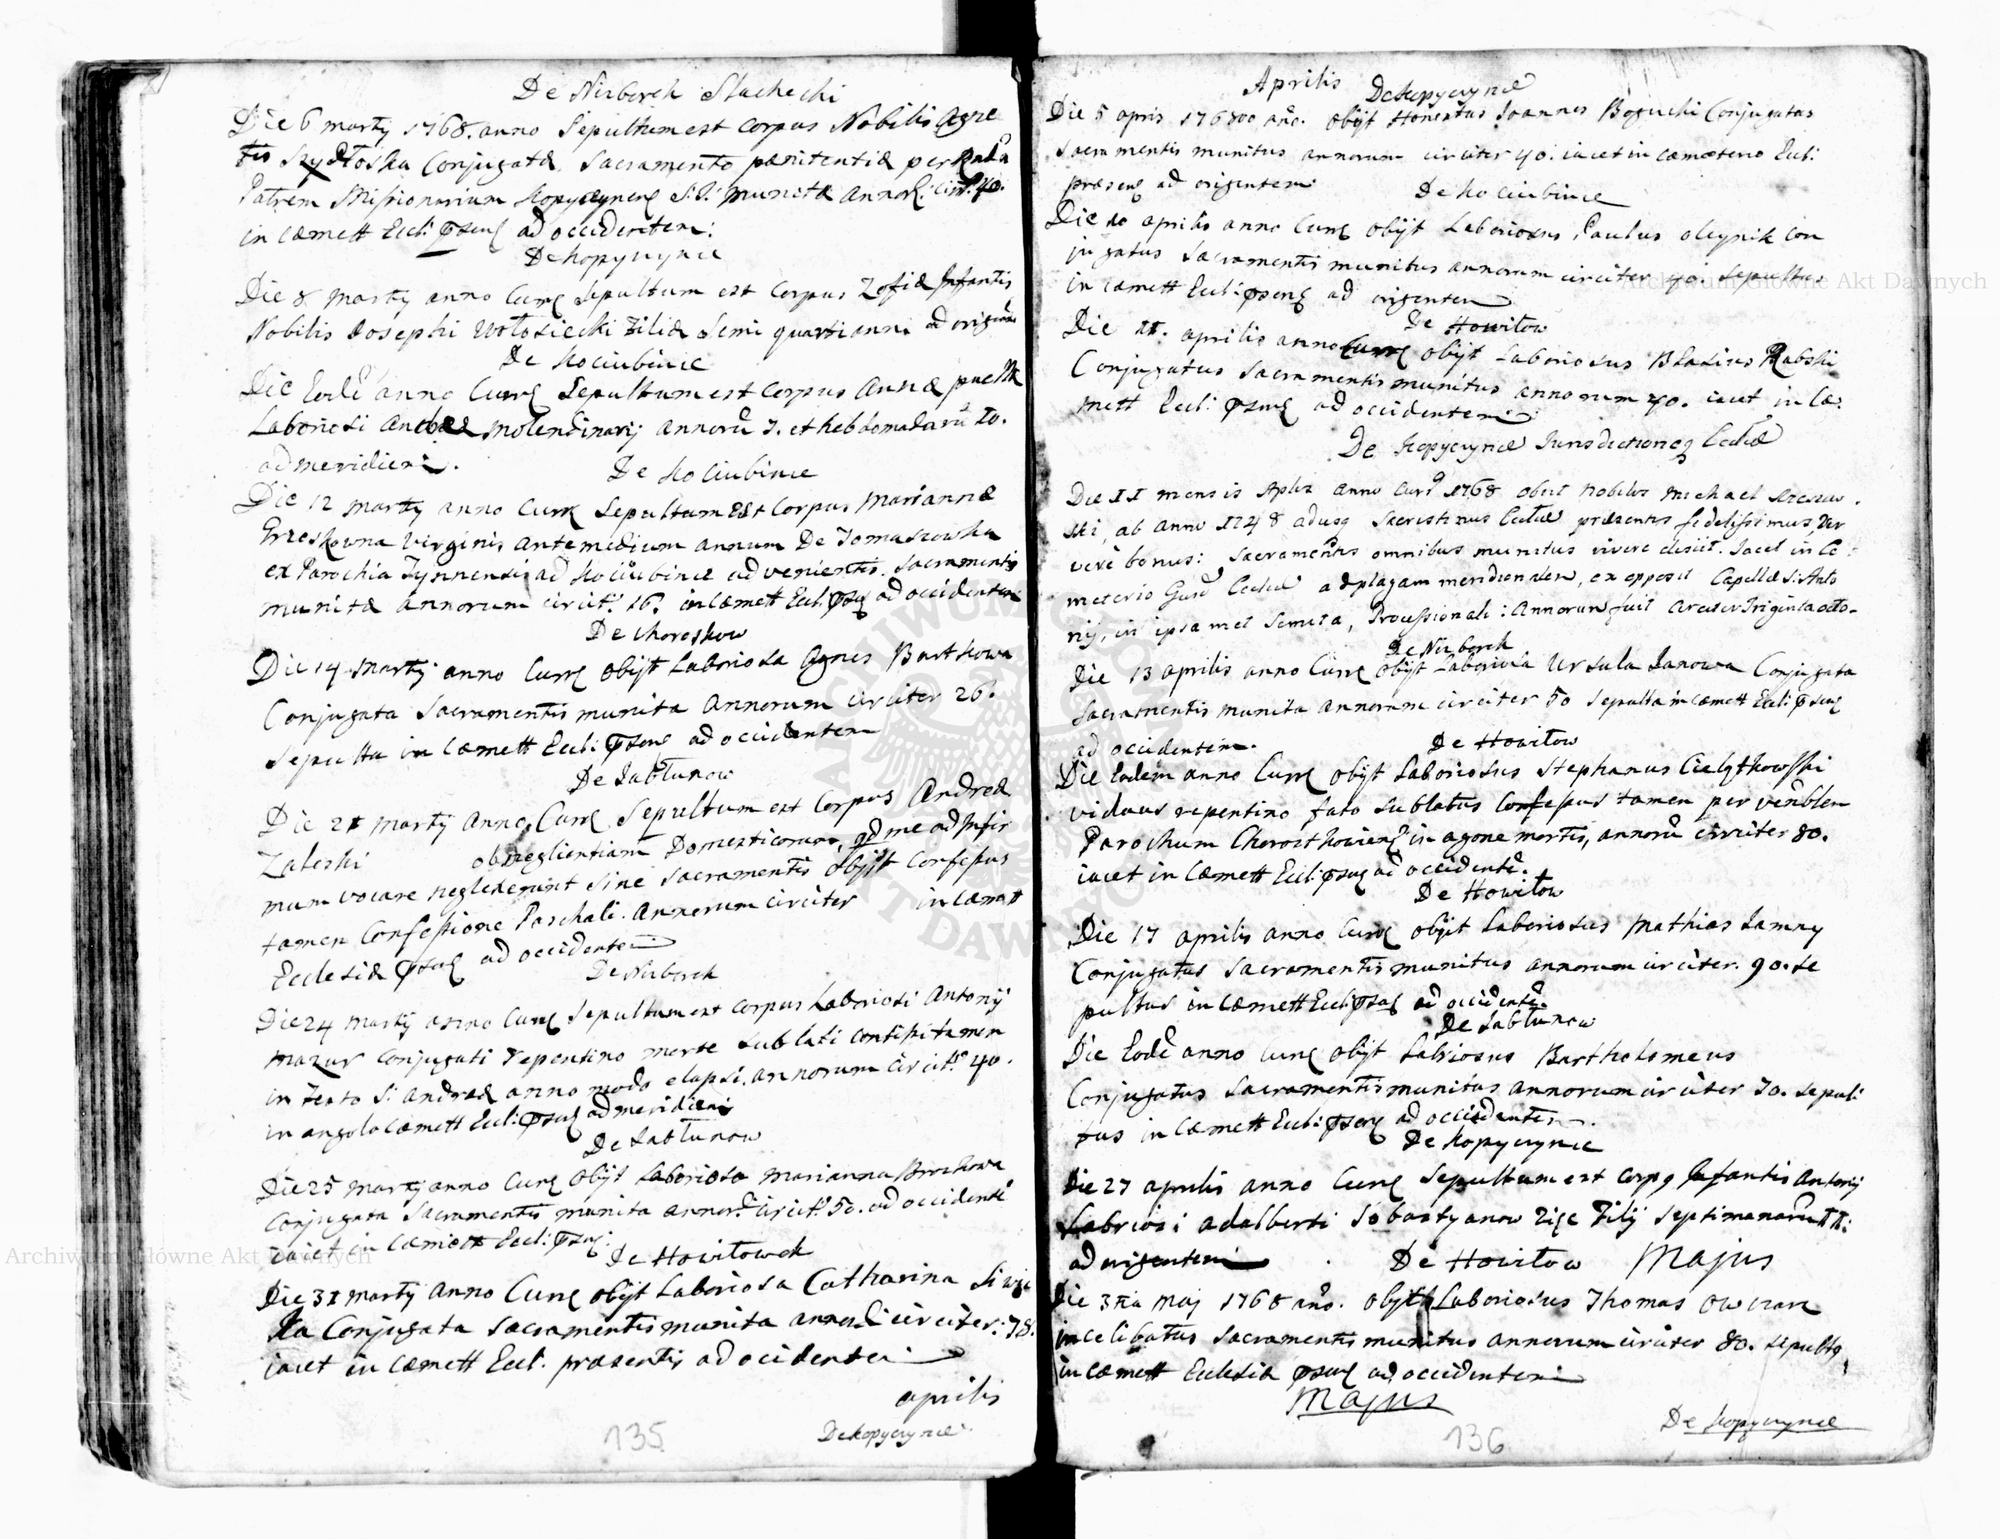 De Nizborek Slachecki
Die 6 marty 1768. anno Sepultum est corpus Nobilis Agne
tis Szydłoska Conjugatæ Sacramento pænitentiæ per Rnda
Patrem Missionarium Kopycyncen S: J: munitæ annor. circit. 40.
in cæmett Eccl: psens ad occidentem:
De Kopycynce
Die 8 marty anno Curr Sepultum est Corpus Zofiæ Infantis
Nobilis Josephi Wołosiecki Filiæ Semi quarti anni ad origent
De Kociubince
Die Eode anno Curr Sepultum est Corpus Annæ puellæ
Laboriosi Molendinarij annorū 7. et hebdomadarū 20.
ad meridiem.
De Kociubince
Die 12 marty anno Curr Sepultum est Corpus Mariannæ
Grzeskowna Virginis ante medium annum De Tomaszowka
ex Parochia Tynnensi ad Kociubince advenientis. Sacramentis
munitæ annorum circit: 16. in cæmett Eccl: psens ad occidentem
De Choroskow
Die 14 marty anno Curr obijt Laboriosa Agnes Bartkowa
Conjugata Sacramentis munita Annorum circiter 26.
sepulta in cæmett Eccl: psens ad occidentem
De Jabłunow
Die 21 marty anno Curr Sepultum est Corpus Andreæ
Zaleski ob negligentiam Domesticorum, qd me ad Infir
mum vocare neglexerunt sine sacramentis obijt Confessus
tamen Confessione Paschali. Annorum circiter in cæmett
Ecclesiæ psens ad occidentem
De Nizborek
Die 24 marty anno Curr Sepultum est corpus Laboriosi Antonij
Mazur Conjugati repentino morte sublati confessi tamen
in festo S: Andreæ anno modo elapsi. annorum circit: 40.
in angolo cæmett Eccl: psens ad meridiem
De Jabłunow
Die 25 marty anno Curr obijt Laboriosa Marianna
Conjugata Sacramentis munita annor. circit: 50. ad occidentē
iacet in cæmett Eccl: psens:
De Howiłowek
Die 31 marty anno Curr obijt Laboriosa Catharina
Conjugata Sacramentis munita annor. circiter: 78.
iacet in cæmett Eccl: præsentis ad occidentem
aprilis
De Kopycynce
135
Aprilis De Kopycynce
Die 5 apris 1768 ano. obijt Honestus Joannes Bogucki Conjugatus
Sacramentis munitus annorum circiter 40. iacet in cæmeterio Eccl:
præsens ad origentem.
De Kociubince
Die 10 aprilis anno Curr obijt Laboriosus Paulus Oleynik Con
jugatus Sacramentis munitus annorum circiter 40. sepultus
in cæmett Eccl: psens ad origentem
De Howiłow
Die 11. aprilis anno Curr obijt Laboriosus Blasius Rabski
Conjugatus Sacramentis munitus annorum 40. iacet in Cæ:
mett Eccl: psens ad occidentem
De Kopycynce Jurisdictionis Ecclæ
Die 11 mensis Aplis anno Curr 1768 obiit nobilis Michael
ski, ab anno 1748 adusq Sacristinus Ecclæ præsentis fidelissimus, Vir
vere bonus: Sacramentis omnibus munitus vivere desiit. Jacet in Ce
meterio Ecclæ ad plagam meridionalem, ex opposit Capellæ S: Anto
nij, in ipsa met Semita, Processionali: Annorum fuit Triginta octo.
De Nizborek
Die 13 aprilis anno Curr obijt Laboriosa Ursula Janowa Conjugata
Sacramentis munita annorum circiter 50 Sepulta in cæmett Eccl: psens
ad occidentem.
De Howiłow
Die Eodem anno Curr obijt Laboriosus Stephanus Cielątkowski
viduus repentino fato sublatus Confessus tamen per venblem
Parochum Chorostkoviens in agone mortis, annorū circiter 80.
iacet in Cæmett Eccl: psens ad occidentē.
De Howiłow
Die 17 aprilis anno Curr obijt Laboriosus Mathias Jamny
Conjugatus Sacramentis munitus annorum circiter. 90. se
pultus in cæmett Eccl: psens ad occidentē.
De Jabłunow
Die Eodē anno Curr obijt Labriosus Bartholomeus
Conjugatus Sacramentis munitus annorum circiter 70. sepul:
tus in cæmett Eccl: psens ad occidentem.
De Kopycynce
Die 27 aprilis anno Curr Sepultum est corpg Infantis Antonij
Labriosi Adalberti Filij Septimanarū
ad origentem De Howiłow Majus
Die 3tia Maj 1768 ano. obijt Laboriosus Thomas Owczarz
in celibatus Sacramentis munitus annorum circiter 80. sepultg
in cæmett Ecclesiæ psens ad occidentem
Majus
De Kopycynce
136
Archiwum Główne Akt Dawnych
Archiwum Główne Akt Dawnych